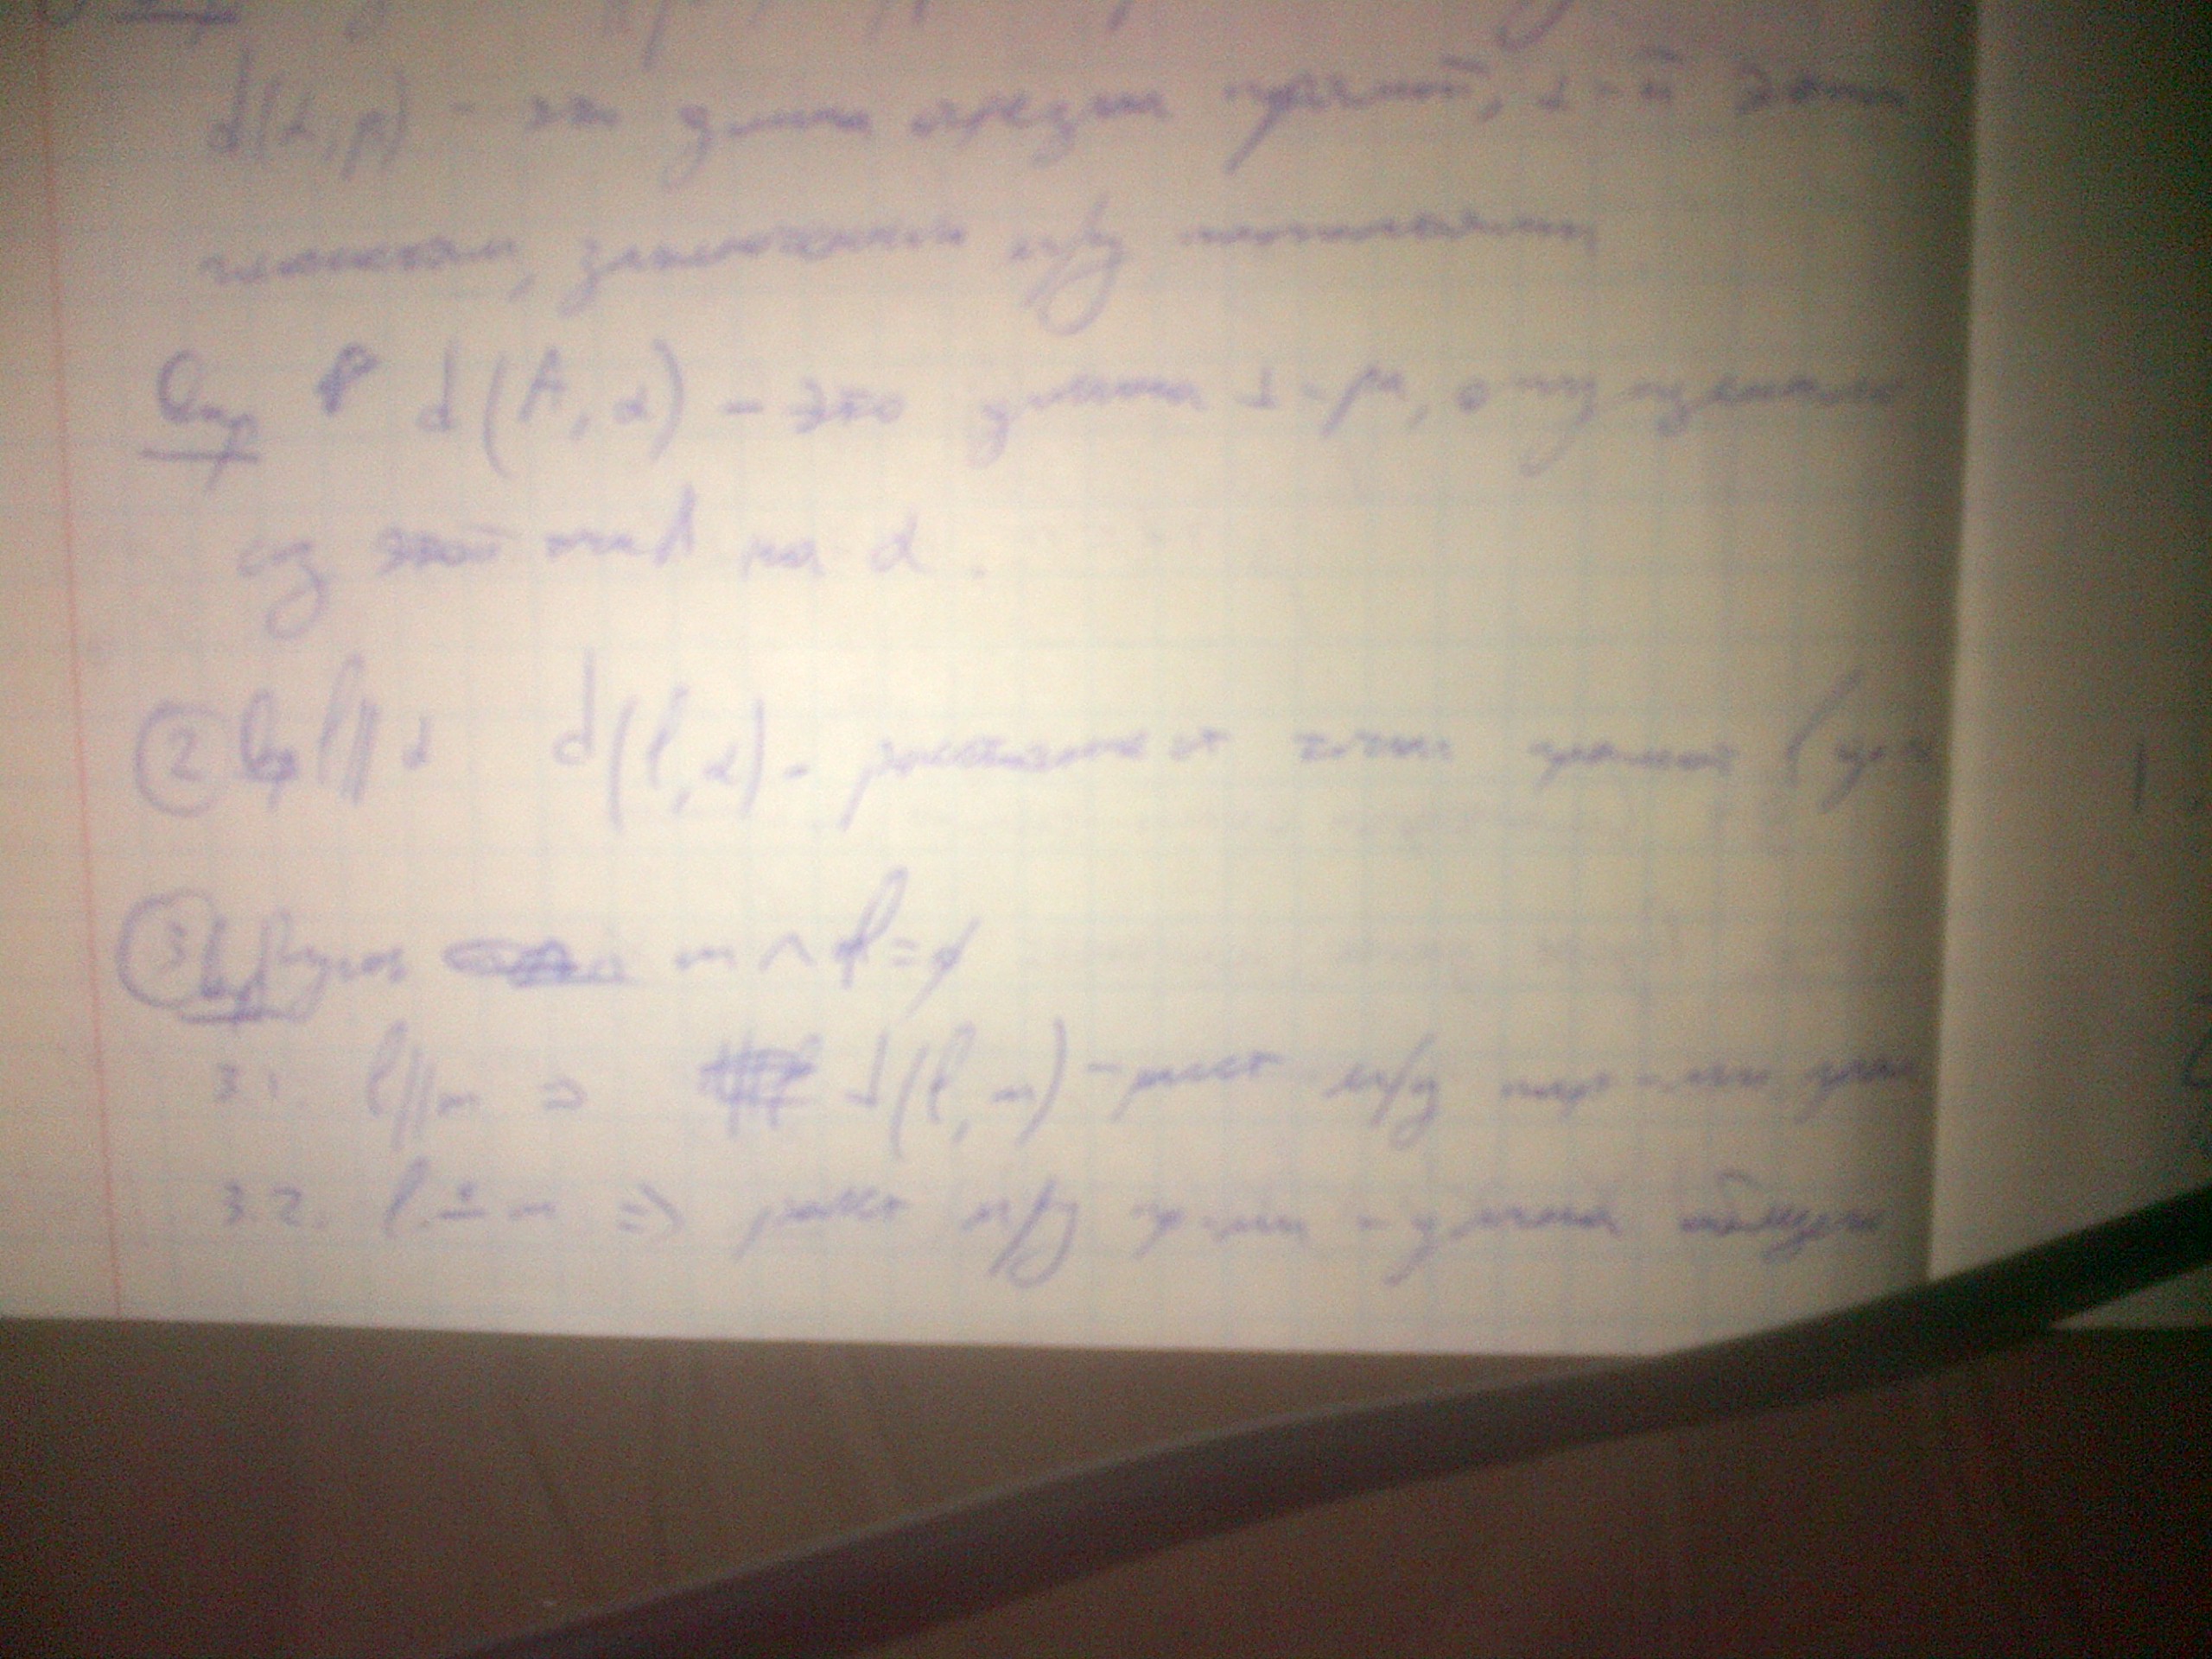 d(α, β) - это длина отрезка прямой, ⊥-й этим
плоскостям, заключенный м/у плоскостями
Опр d(A, α) - это длина ⊥-ра, опущенного
из этой точки на α.
② Опр l || α d(l, α) - расстояние от точки прямой
③ Опр Пусть m ∩ l = ∅
3.1. l || m ⇒ d(l, m) - расст м/у пар-ми
3.2. l ∸ m ⇒ расст м/у пр-ми - длина общего